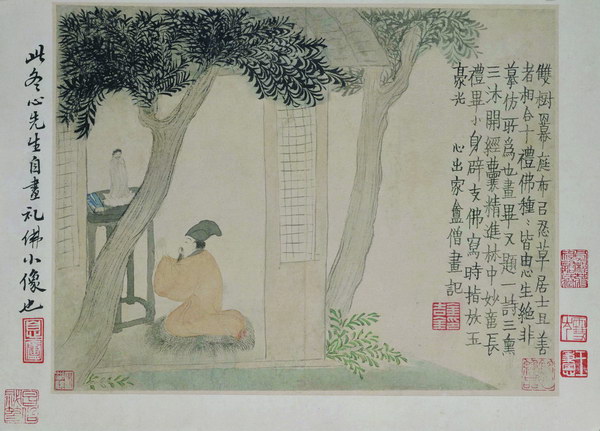 雙樹羃庭布㠯忍草居士且善
者相合十禮佛種〻皆由心生絕非
摹仿所爲也畫畢又題一詩三熏
三沐開經囊精進林中妙意長
禮畢小身辟支佛寫時指放玉
豪光 心出家盦僧畫記
此冬心先生自畫礼佛小像也